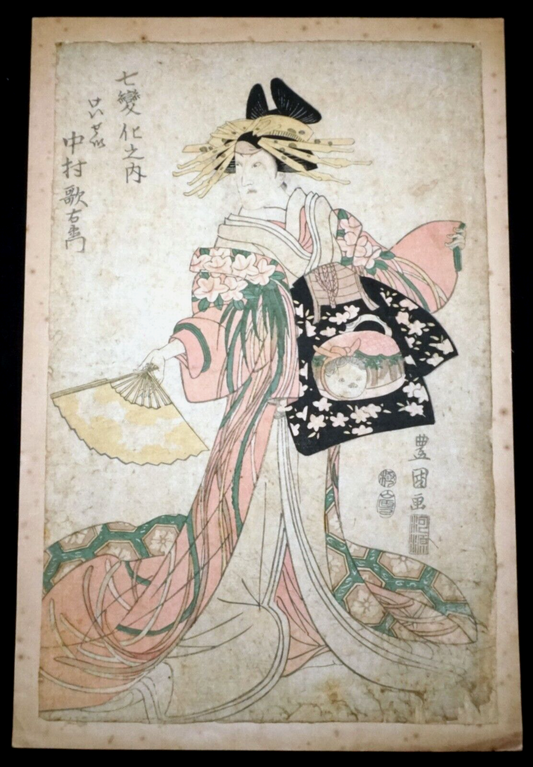 七變化之内
けいせい
中村歌右衛門
豊國画